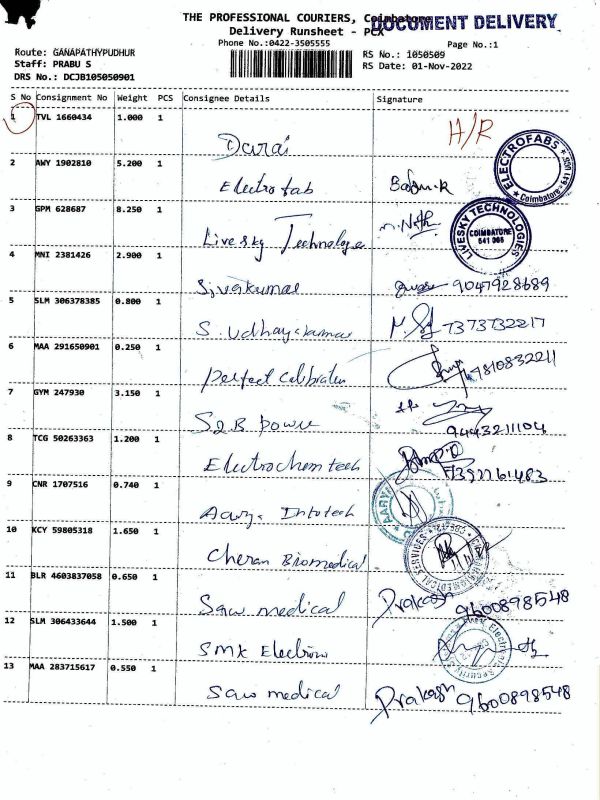 THE PROFESSIONAL COURIERS, Coimbatore
DOCUMENT DELIVERY
Delivery Runsheet - PCX
Phone No.:0422-3505555
Page No.:1
Route: GANAPATHYPUDHUR
RS No.: 1050509
Staff: PRABU S
RS Date: 01-Nov-2022
DRS No.: DCJB105050901
S No Consignment No Weight PCS Consignee Details Signature
1 TVL 1660434 1.000 1 Durai H/R
2 AWY 1902810 5.200 1 Electro fab
ELECTROFABS
Coimbatore
3 GPM 628687 8.250 1 Livesky Technologie
LIVESKY TECHNOLOGIES
COIMBATORE
641 006
4 MNI 2381426 2.900 1 Sivakumar 9047928689
5 SLM 306378385 0.800 1 S. Udhayakumar 7373732217
6 MAA 291650901 0.250 1 Perfect Calibration 7810832211
7 GYM 247930 3.150 1 SQB power 9443211104
8 TCG 50263363 1.200 1 Electrochem teech
9 CNR 1707516 0.740 1 Aarya Infotech
AARYA
10 KCY 59805318 1.650 1 Cheran Biomedical
MEDICAL SERVICES
11 BLR 4603837058 0.650 1 Saw medical Prakash 9600898548
12 SLM 306433644 1.500 1 SMK Electron
13 MAA 283715617 0.550 1 Saw medical Prakash 9600898548